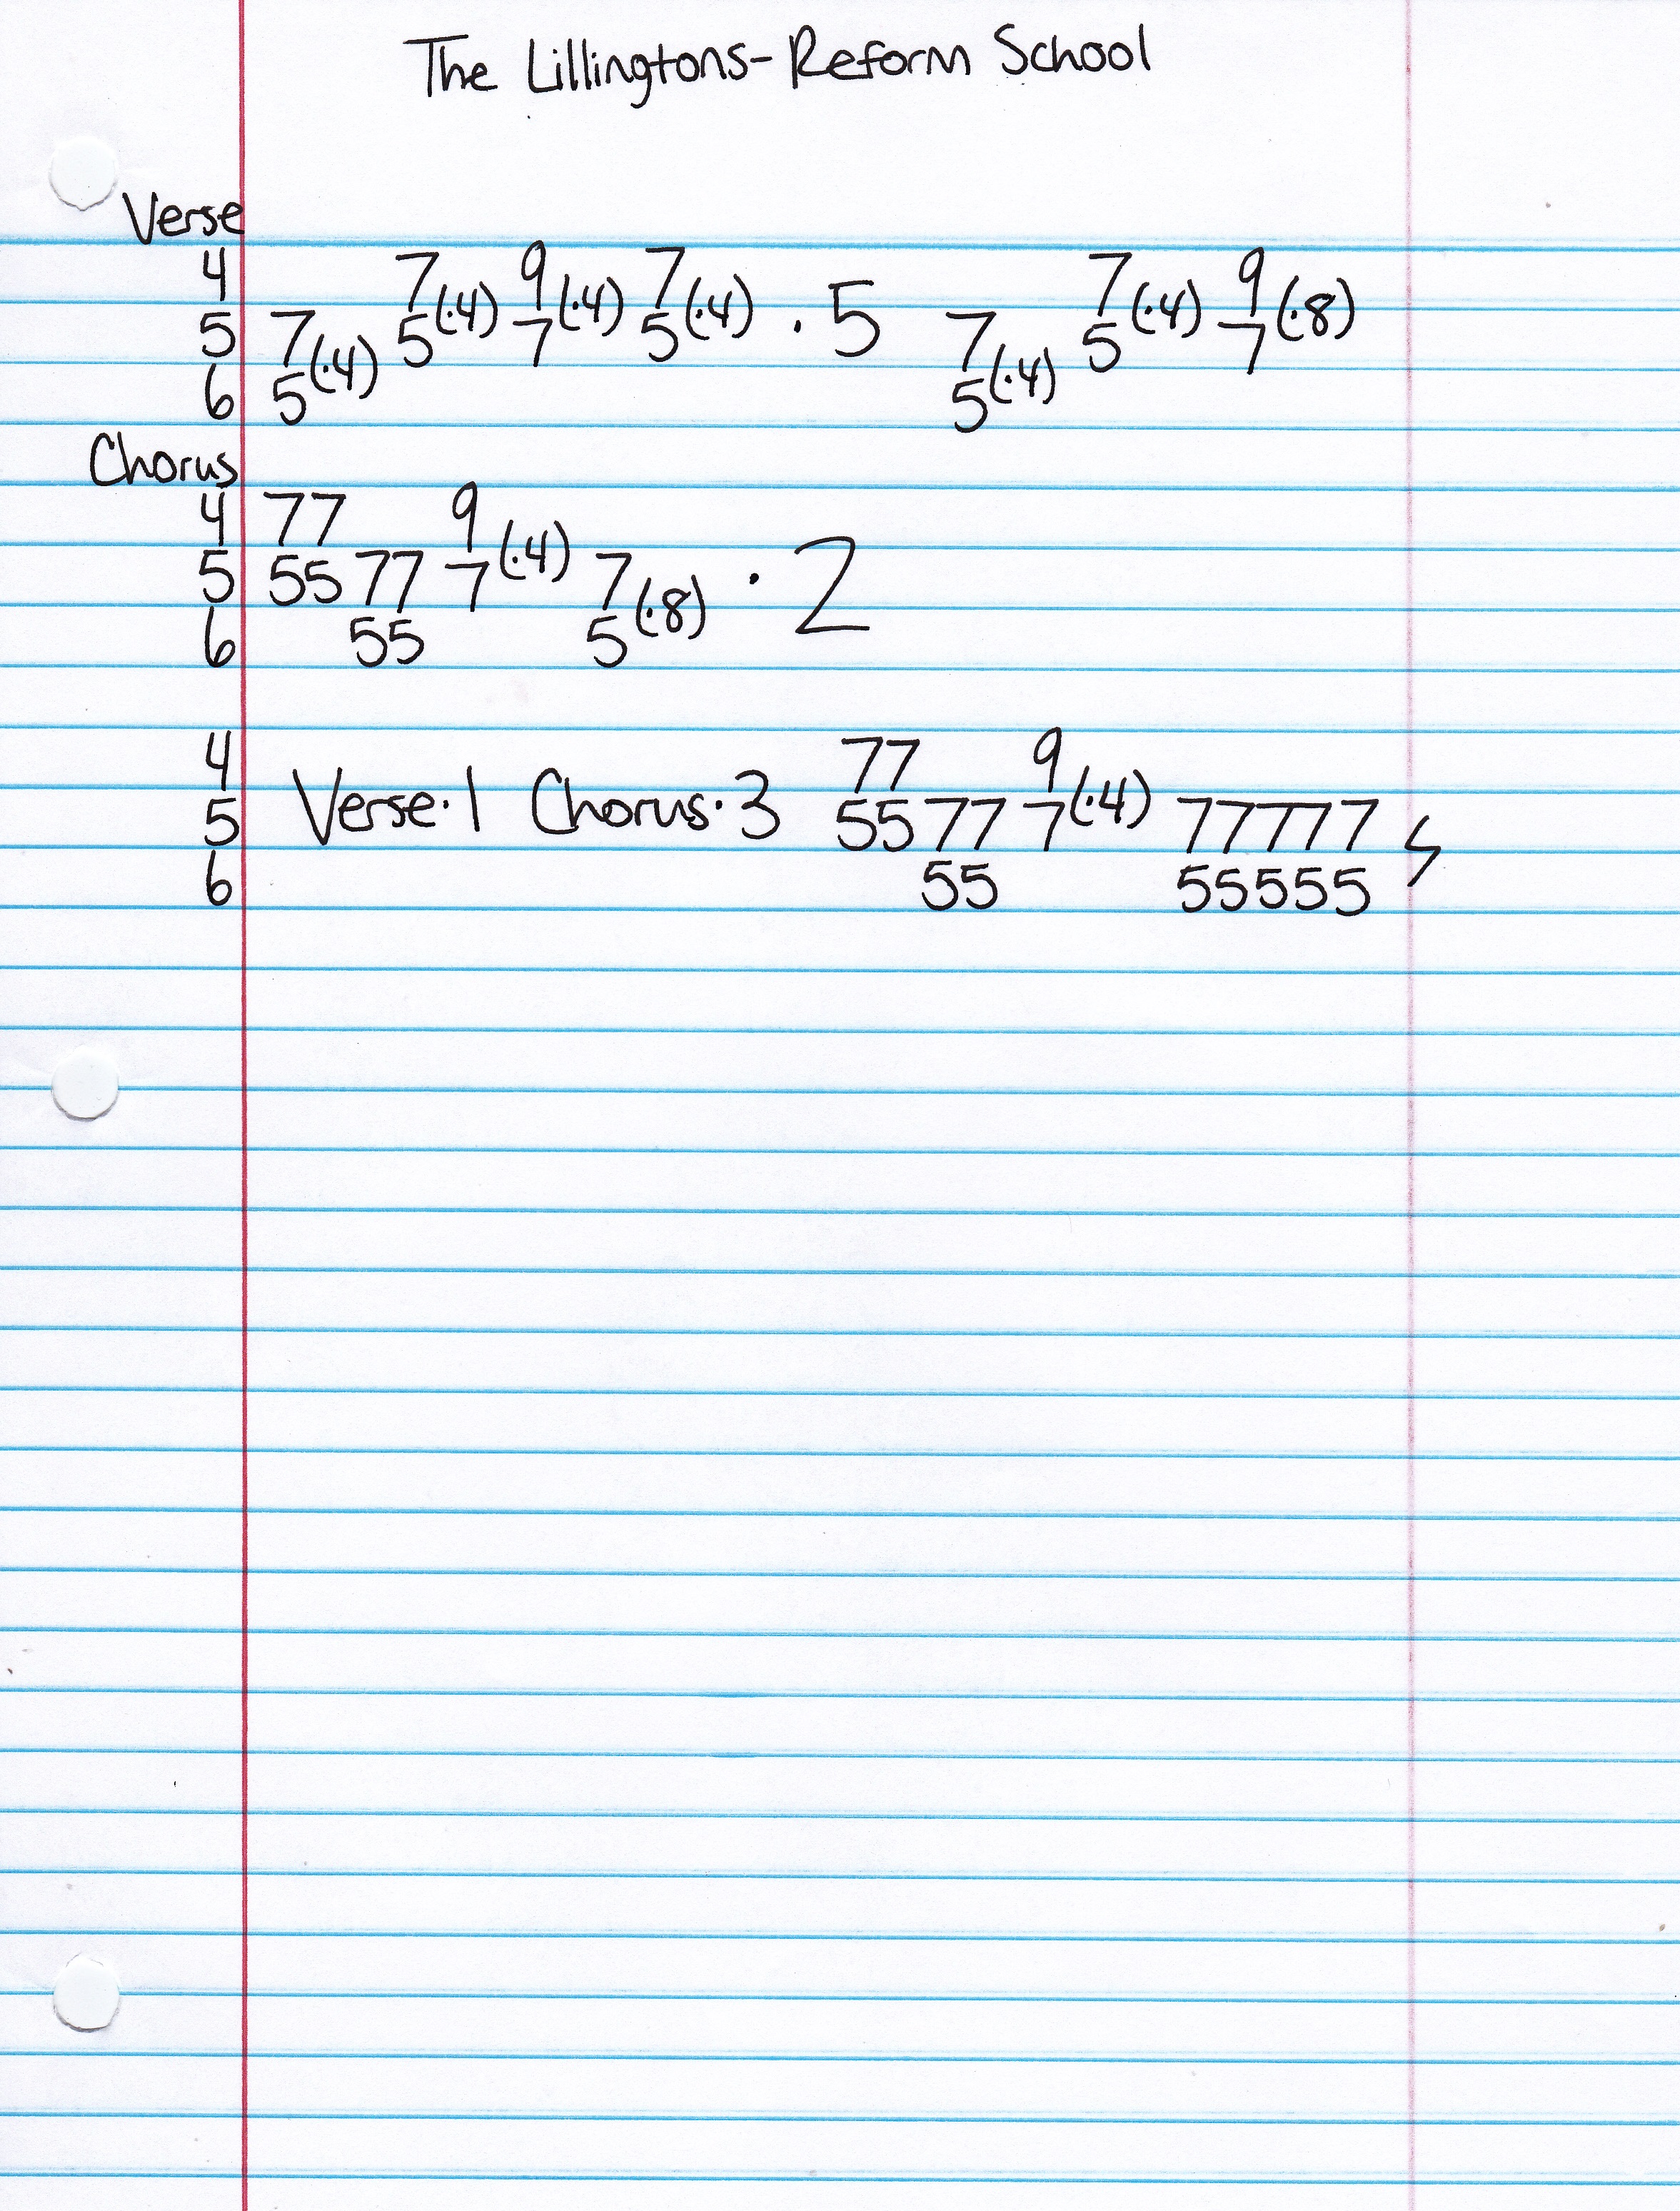 The Lillingtons-Reform School
Verse
4 7 9 7 7 9
5 7 5(·4) 7(·4) 5(·4) · 5 7 5(·4) 7(·8)
6 5(·4) 5(·4)
Chorus
4 77 9
5 55 77 7(·4) 7 · 2
6 55 5(·8)
4 77 9
5 Verse·1 Chorus·3 55 77 7(·4) 77777
6 55 55555